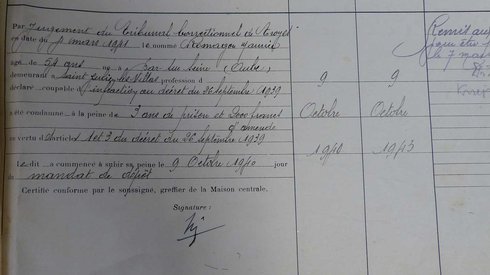 Par Jugement du Tribunal correctionnel de Troyes
en date du mars 1941 le nommé Romagon Maurice
âgé de 54 ans né à Bar-sur-Seine (Aube)
demeurant à Saint les Villas profession d
déclaré coupable d'infraction au décret du 26 septembre 1939
a été condamné à la peine de 3 ans de prison et 2000 francs
d'amende
en vertu d articles 1 et 3 du décret du 26 septembre 1939
Le dit a commencé à subir sa peine le 9 Octobre 1940 jour
du mandat de dépôt
Certifié conforme par le soussigné, greffier de la Maison centrale.
Signature :
9
Octobre
1940
9
Octobre
1943
Remis au
le 7 mai